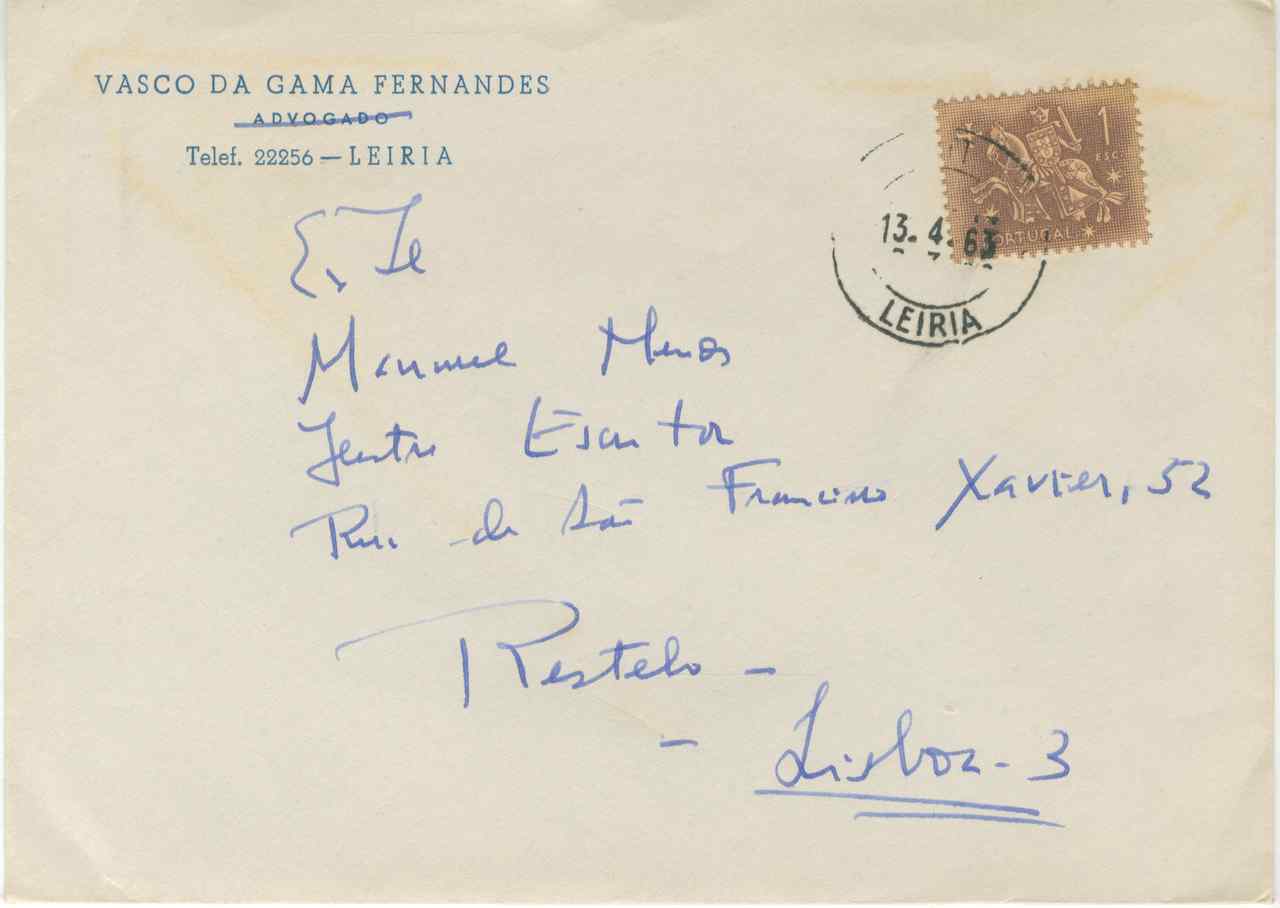 VASCO DA GAMA FERNANDES
ADVOGADO
Telef. 22256 — LEIRIA
1
ESC.
PORTUGAL
13. 4. 63
LEIRIA
Manuel Mendes
Escritor
Rua de São Francisco Xavier, 52
Restelo -
- Lisboa - 3